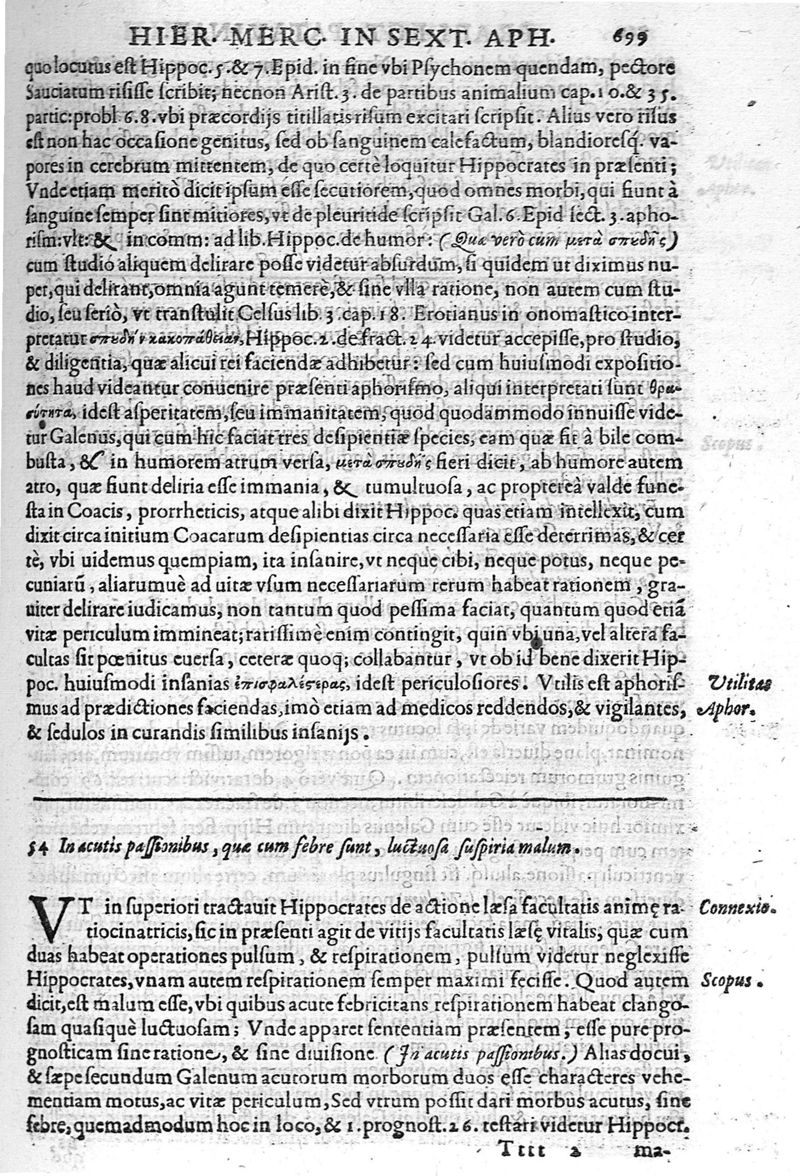 HIER. MERC. IN SEXT. APH. 699
quo locutus est Hippoc. 5. & 7. Epid. in fine vbi Psychonem quendam, pectore
Sauciatum risisse scribit; necnon Arist. 3. de partibus animalium cap. 10. & 35.
partic: probl. 6. 8. vbi præcordijs titillatis risum excitari scripsit. Alius vero risus
est non hac occasione genitus, sed ob sanguinem calefactum, blandioresq. va-
pores in cerebrum mittentem, de quo certè loquitur Hippocrates in præsenti;
Vnde etiam meritò dicit ipsum esse secutiorem, quod omnes morbi, qui fiunt à
sanguine semper sint mitiores, vt de pleuritide scripsit Gal. 6. Epid sect. 3. apho-
rism: vlt: & in comm: ad lib. Hippoc. de humor: (Quæ verò cum μετὰ σπυδῆς)
cum studiò aliquem delirare posse videtur absurdum, si quidem ut diximus nu-
per, qui delirant, omnia agunt temerè, & sine vlla ratione, non autem cum stu-
dio, seu seriò, vt transtulit Celsus lib 3. cap. 18. Erotianus in onomastico inter-
pretatur σπυδὴν κακοπάθειαν, Hippoc. 2. de fract. 24. videtur accepisse, pro studio,
& diligentia, quæ alicui rei faciendæ adhibetur: sed cum huiusmodi expositio-
nes haud videantur conuenire præsenti aphorismo, aliqui interpretati sunt θρα-
σύτητα, idest asperitatem, seu immanitatem, quod quodammodo innuisse vide-
tur Galenus, qui cum hic faciat tres desipientiæ species, eam quæ fit à bile com-
busta, & in humorem atrum versa, μετὰ σπυδῆς fieri dicit, ab humore autem
atro, quæ fiunt deliria esse immania, & tumultuosa, ac proptereà valde fune-
sta in Coacis, prorrheticis, atque alibi dixit Hippoc. quas etiam intellexit, cum
dixit circa initium Coacarum desipientias circa necessaria esse deterrimas, & cer
tè, vbi uidemus quempiam, ita insanire, vt neque cibi, neque potus, neque pe-
cuniarū, aliarumuè ad uitæ vsum necessariarum rerum habeat rationem, gra-
uiter delirare iudicamus, non tantum quod pessima faciat, quantum quod etiā
vitæ periculum immineat; rarissimè enim contingit, quin vbi una, vel altera fa-
cultas sit pœnitus euersa, ceteræ quoq; collabantur, vt ob id bene dixerit Hip-
poc. huiusmodi insanias ἐπισφαλέςερας, idest periculosiores. Vtilis est aphoris- Vtilitas
mus ad prædictiones faciendas, imò etiam ad medicos reddendos, & vigilantes, Aphor.
& sedulos in curandis similibus insanijs.
54 In acutis passionibus, quæ cum febre sunt, luctuosa suspiria malum.
VT in superiori tractauit Hippocrates de actione læsa facultatis animę ra- Connexio.
tiocinatricis, sic in præsenti agit de vitijs facultatis læsę vitalis, quæ cum
duas habeat operationes pulsum, & respirationem, pulsum videtur neglexisse
Hippocrates, vnam autem respirationem semper maximi fecisse. Quod autem Scopus.
dicit, est malum esse, vbi quibus acute febricitans respirationem habeat clango-
sam quasiquè luctuosam; Vnde apparet sententiam præsentem, esse pure pro-
gnosticam sine ratione, & sine diuisione (In acutis passionibus.) Alias docui,
& sæpe secundum Galenum acutorum morborum duos esse characteres vehe-
mentiam motus, ac vitæ periculum, Sed vtrum possit dari morbus acutus, sine
febre, quemadmodum hoc in loco, & 1. prognost. 26. testari videtur Hippocr.
Tttt 2 ma-